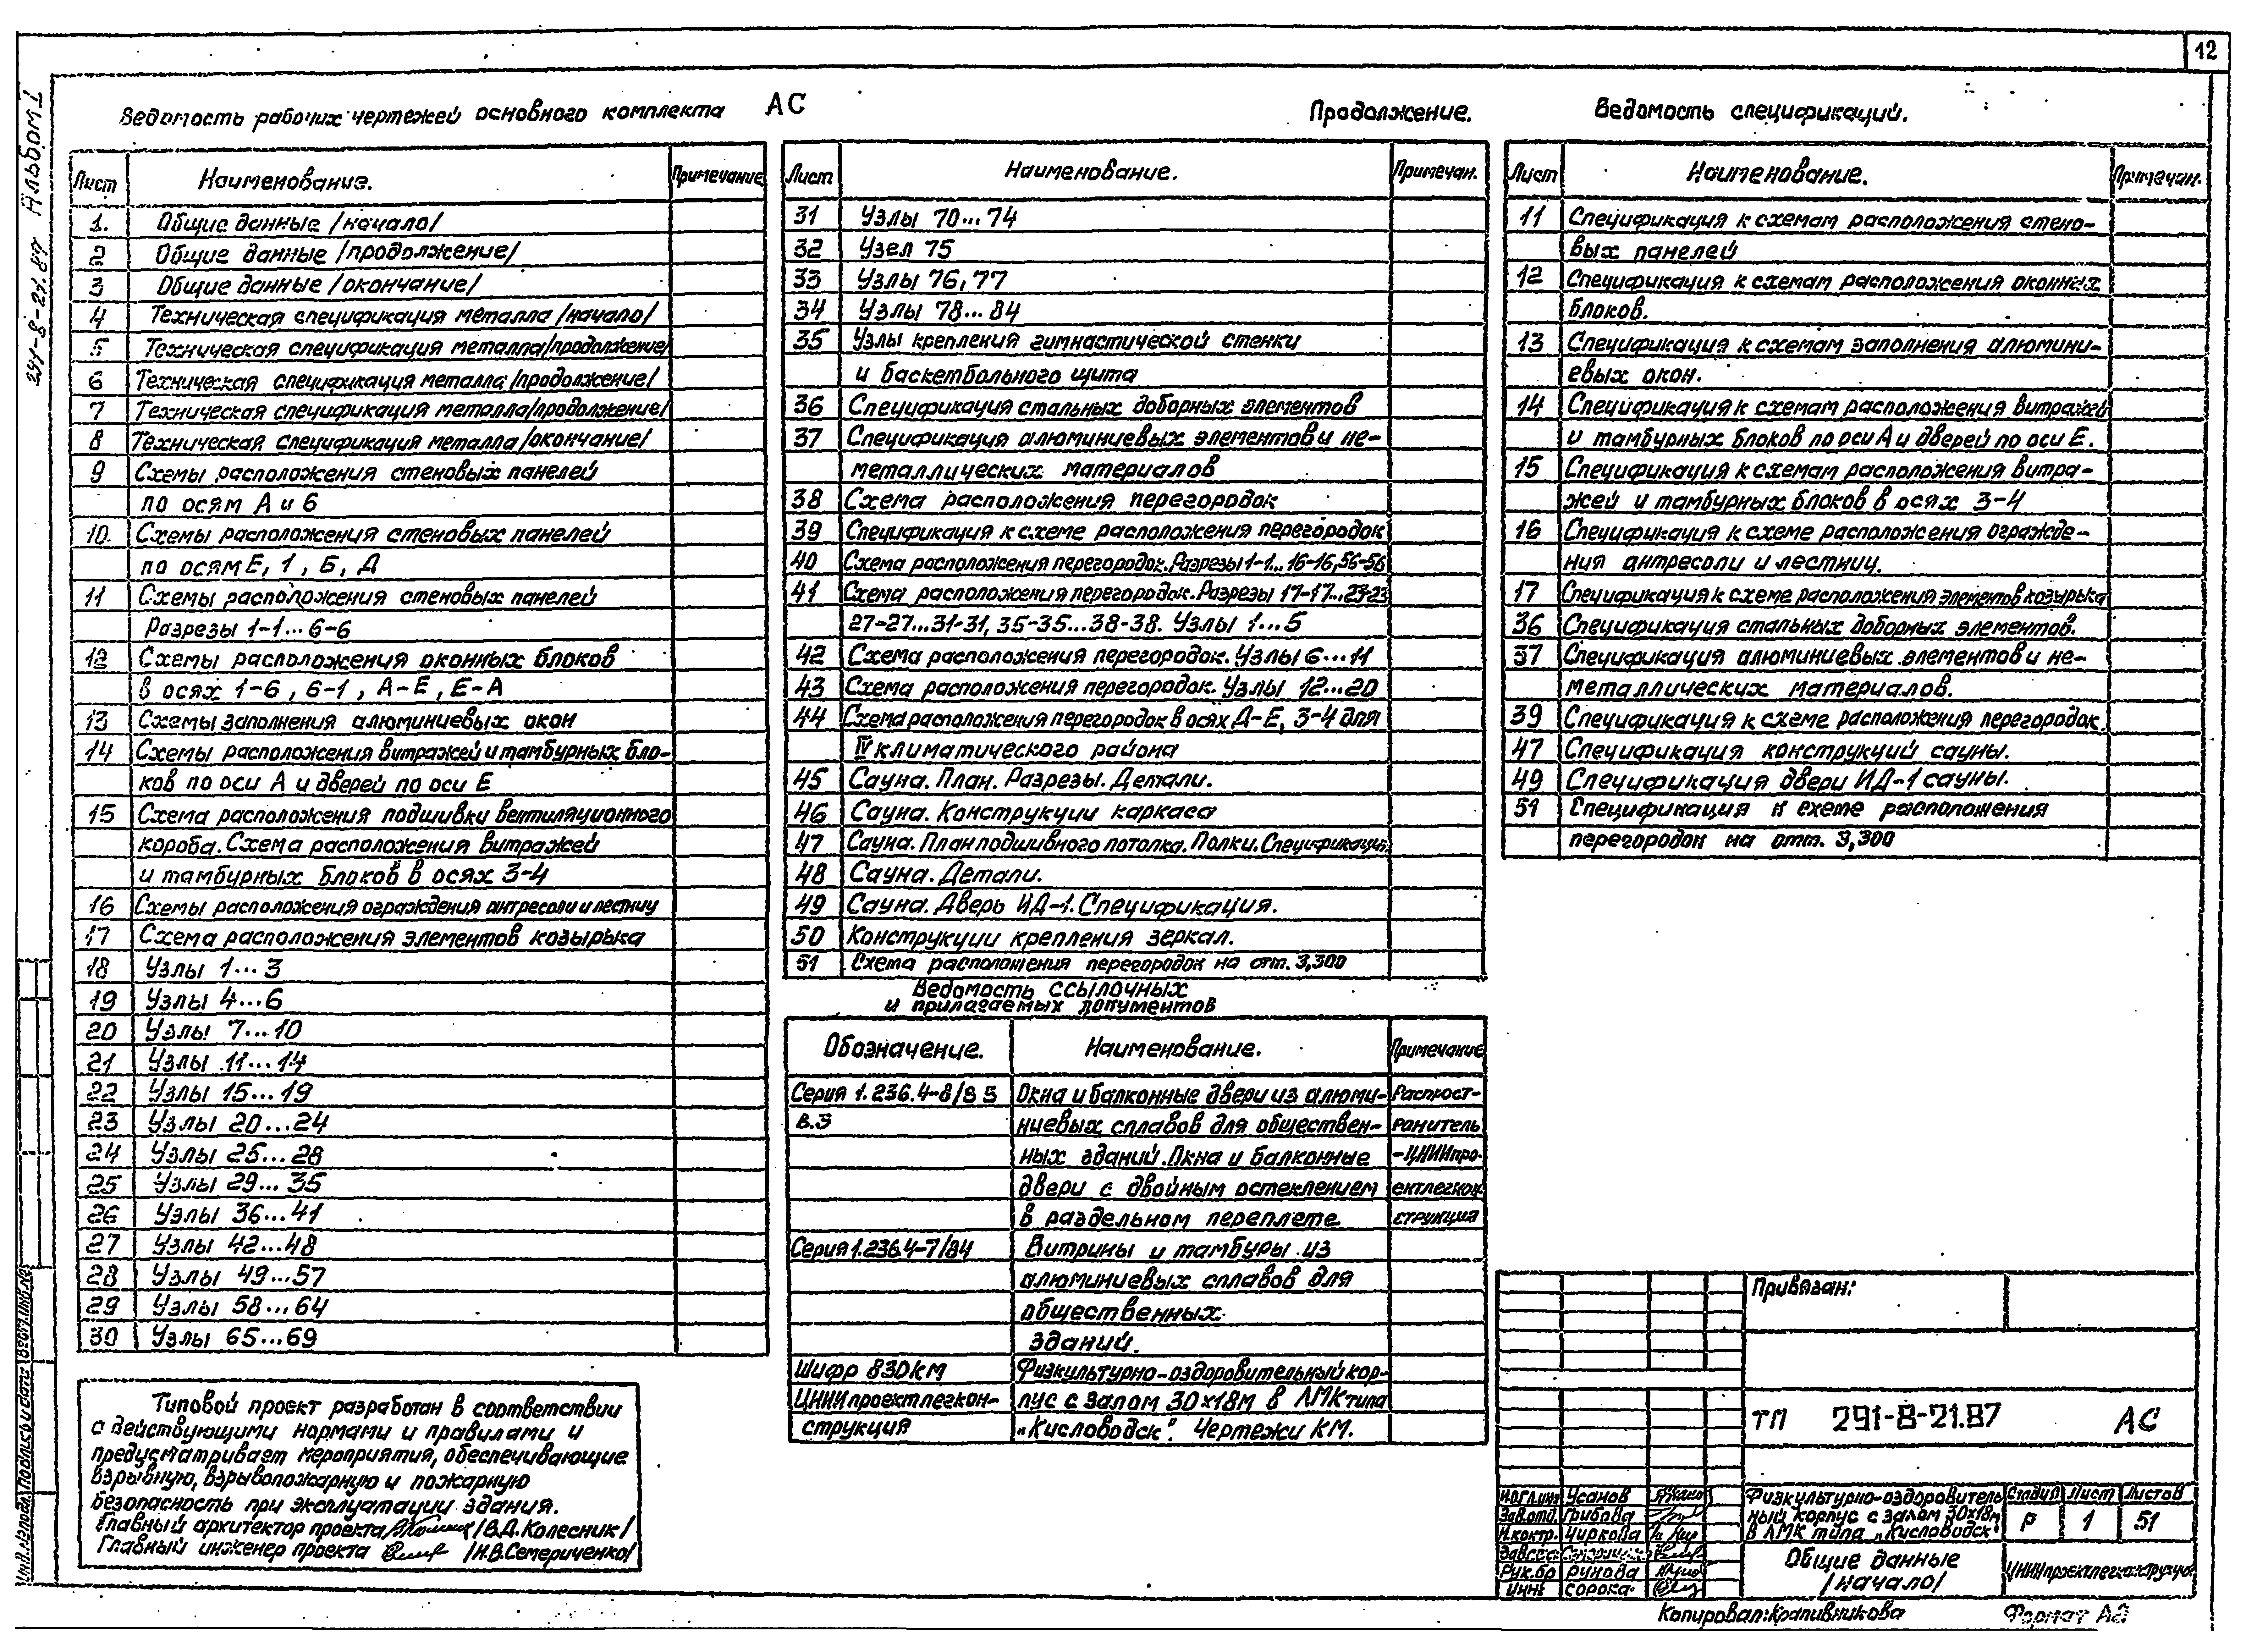 12
Альбом 1
291-8-21.87
Ведомость рабочих чертежей основного комплекта АС
Лист Наименование. Примечание
1. Общие данные /начало/
2 Общие данные /продолжение/
3 Общие данные /окончание/
4 Техническая спецификация металла /начало/
5 Техническая спецификация металла/продолжение/
6 Техническая спецификация металла /продолжение/
7 Техническая спецификация металла/продолжение/
8 Техническая спецификация металла /окончание/
9 Схемы расположения стеновых панелей
по осям А и 6
10. Схемы расположения стеновых панелей
по осям Е, 1, Б, Д
11 Схемы расположения стеновых панелей
Разрезы 1-1...6-6
12 Схемы расположения оконных блоков
в осях 1-6, 6-1, А-Е, Е-А
13 Схемы заполнения алюминиевых окон
14 Схемы расположения витражей и тамбурных бло-
ков по оси А и дверей по оси Е
15 Схема расположения подшивки вентиляционного
короба. Схема расположения витражей
и тамбурных блоков в осях 3-4
16 Схемы расположения ограждения антресоли и лестниц
17 Схема расположения элементов козырька
18 Узлы 1...3
19 Узлы 4...6
20 Узлы 7...10
21 Узлы 11...14
22 Узлы 15...19
23 Узлы 20...24
24 Узлы 25...28
25 Узлы 29...35
26 Узлы 36...41
27 Узлы 42...48
28 Узлы 49...57
29 Узлы 58...64
30 Узлы 65...69
Типовой проект разработан в соответствии
с действующими нормами и правилами и
предусматривает мероприятия, обеспечивающие
взрывную, взрывопожарную и пожарную
безопасность при эксплуатации здания.
Главный архитектор проекта /В.Д.Колесник/
Главный инженер проекта /Н.В.Семериченко/
Продолжение.
Лист Наименование. Примечан.
31 Узлы 70...74
32 Узел 75
33 Узлы 76, 77
34 Узлы 78...84
35 Узлы крепления гимнастической стенки
и баскетбольного щита
36 Спецификация стальных доборных элементов
37 Спецификация алюминиевых элементов и не-
металлических материалов
38 Схема расположения перегородок
39 Спецификация к схеме расположения перегородок
40 Схема расположения перегородок. Разрезы 1-1...16-16, 56-56
41 Схема расположения перегородок. Разрезы 17-17...23-23
27-27...31-31, 35-35...38-38. Узлы 1...5
42 Схема расположения перегородок. Узлы 6...11
43 Схема расположения перегородок. Узлы 12...20
44 Схема расположения перегородок в осях Д-Е, 3-4 для
IV климатического района
45 Сауна. План. Разрезы. Детали.
46 Сауна. Конструкции каркаса
47 Сауна. План подшивного потолка. Полки. Спецификац.
48 Сауна. Детали.
49 Сауна. Дверь ИД-1. Спецификация.
50 Конструкции крепления зеркал.
51 Схема расположения перегородок на отм. 3,300
Ведомость ссылочных
и прилагаемых документов
Обозначение. Наименование. Примечание
Серия 1.236.4-8/85 Окна и балконные двери из алюми- Распрост-
в.3 ниевых сплавов для обществен- ранитель
ных зданий. Окна и балконные -ЦНИИпро-
двери с двойным остеклением ектлегкон-
в раздельном переплете струкция
Серия 1.236.4-7/84 Витрины и тамбуры из
алюминиевых сплавов для
общественных
зданий.
Шифр 830КМ Физкультурно-оздоровительный кор-
ЦНИИпроектлегкон- пус с залом 30х18м в ЛМК типа
струкция „Кисловодск". Чертежи КМ.
Ведомость спецификаций.
Лист Наименование. Примечан.
11 Спецификация к схемам расположения стено-
вых панелей
12 Спецификация к схемам расположения оконных
блоков.
13 Спецификация к схемам заполнения алюмини-
евых окон.
14 Спецификация к схемам расположения витражей
и тамбурных блоков по оси А и дверей по оси Е.
15 Спецификация к схемам расположения витра-
жей и тамбурных блоков в осях 3-4
16 Спецификация к схеме расположения огражде-
ния антресоли и лестниц.
17 Спецификация к схеме расположения элементов козырька
36 Спецификация стальных доборных элементов.
37 Спецификация алюминиевых элементов и не-
металлических материалов.
39 Спецификация к схеме расположения перегородок.
47 Спецификация конструкций сауны.
49 Спецификация двери ИД-1 сауны.
51 Спецификация к схеме расположения
перегородок на отм. 3,300
Привязан:
ТП 291-8-21.87 АС
Усанов
Зав.отд. Грибова
Н.контр. Чиркова
Рук.бр Рунова
Инж Сорока
Физкультурно-оздоровитель
ный корпус с залом 30х18м
в ЛМК типа „Кисловодск"
Стадия Лист Листов
Р 1 51
Общие данные
/начало/
ЦНИИпроектлегконструкция
Копировал: Крапивникова Формат А2
Инв.№подл. Подпись и дата Взам.инв.№